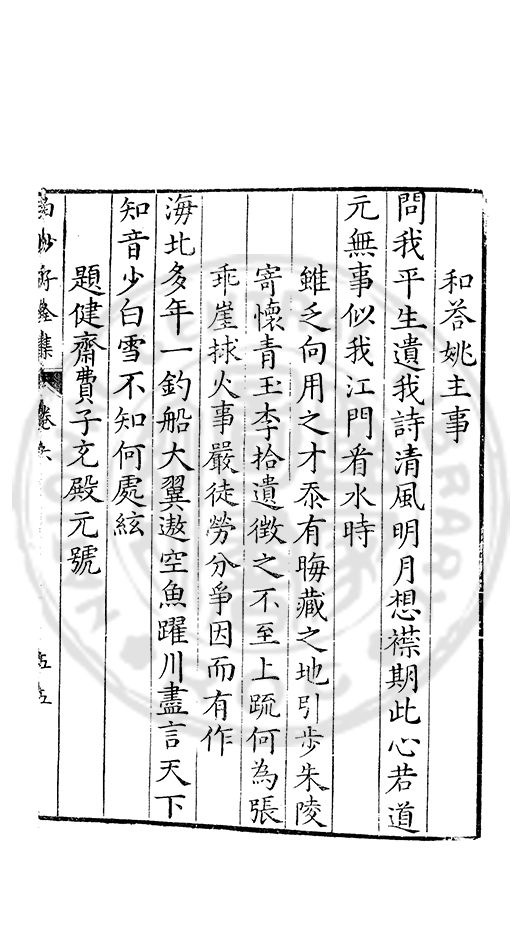 和荅姚主事
問我平生遺我詩清風明月想襟期此心若道
元無事似我江門看水時
雖乏向用之才忝有晦藏之地引步朱陵
寄懷青玉李拾遺徵之不至上疏何為張
乖崖捄火事嚴徒勞分爭因而有作
海北多年一釣船大翼遨空魚躍川盡言天下
知音少白雪不知何處絃
題健齋費子充殿元號
集 卷六